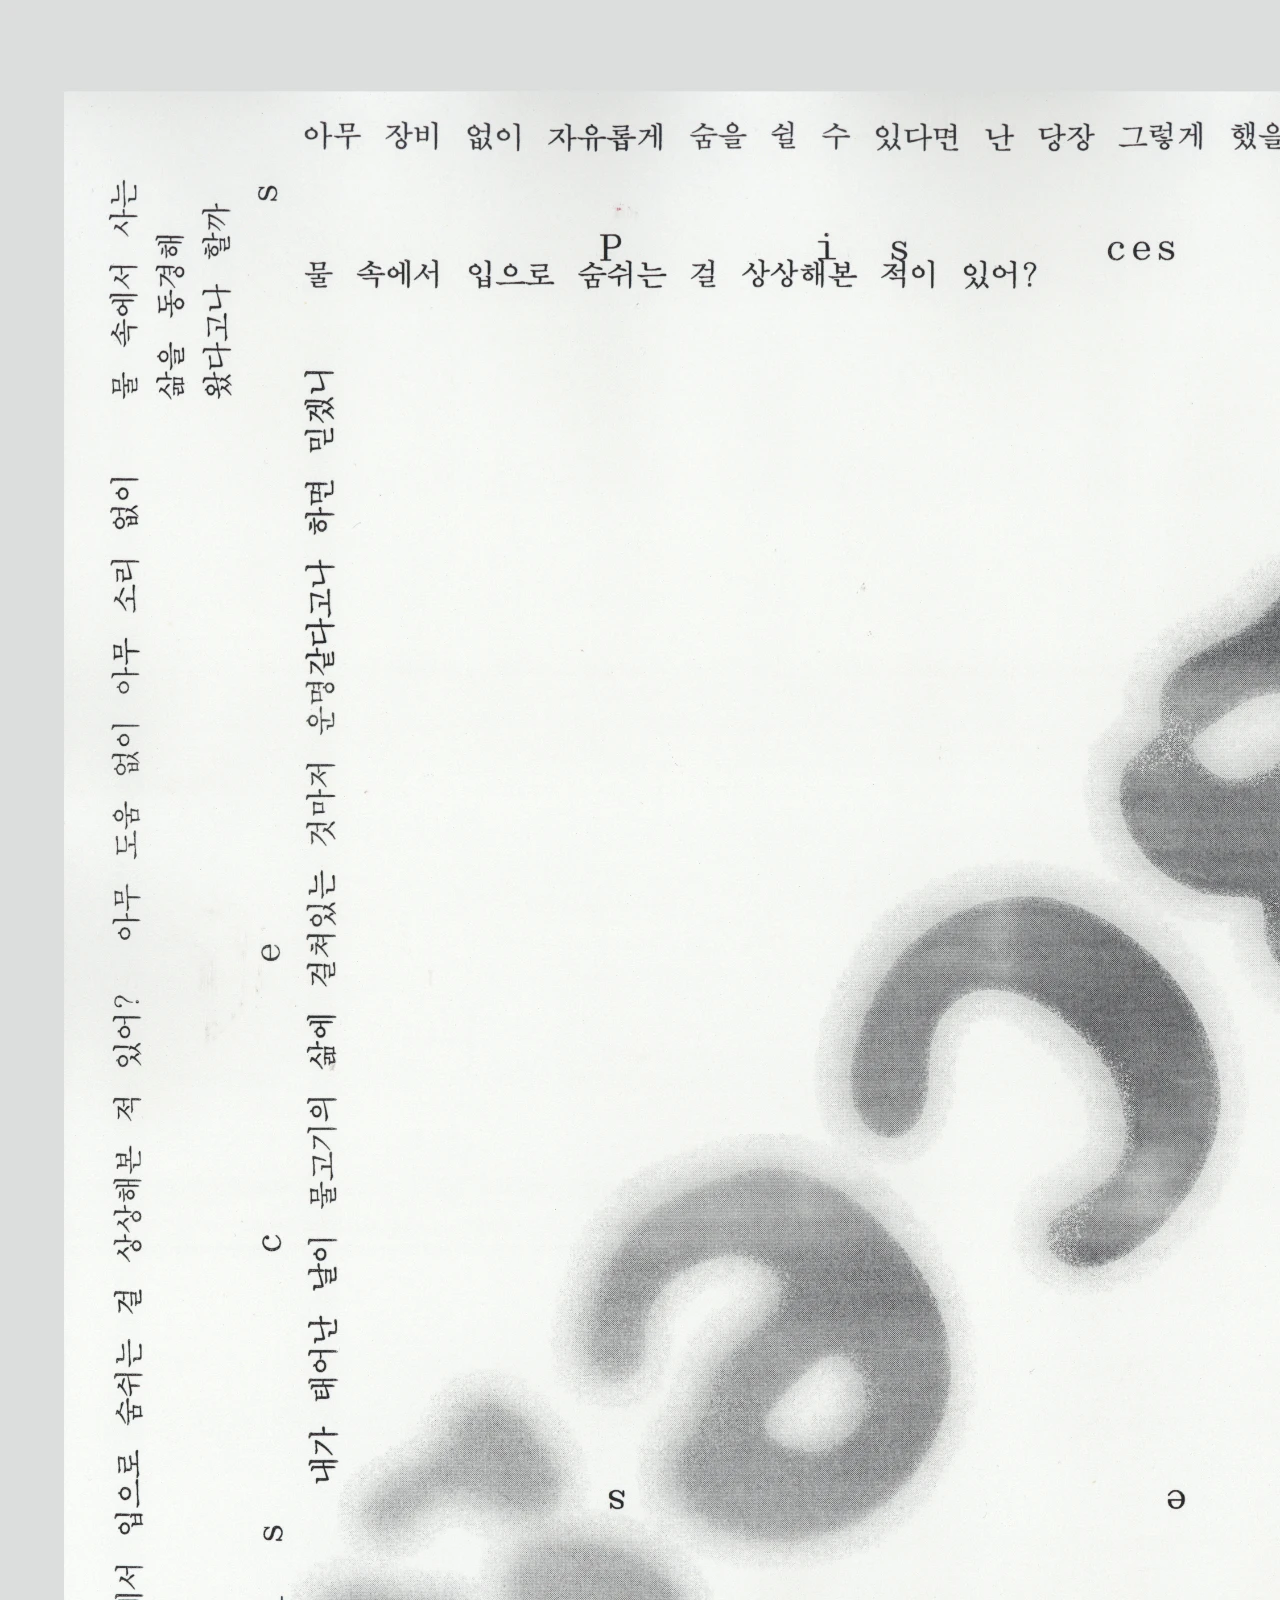 아무 장비 없이 자유롭게 숨을 쉴 수 있다면 난 당장 그렇게 했을
P i s ces
물 속에서 입으로 숨쉬는 걸 상상해본 적이 있어?
입으로 숨쉬는 걸 상상해본 적 있어? 아무 도움 없이 아무 소리 없이
물 속에서 사는
삶을 동경해
왔다고나 할까
s c e s
내가 태어난 날이 물고기의 삶에 걸쳐있는 것마저 운명같다고나 하면 믿겠니
s e